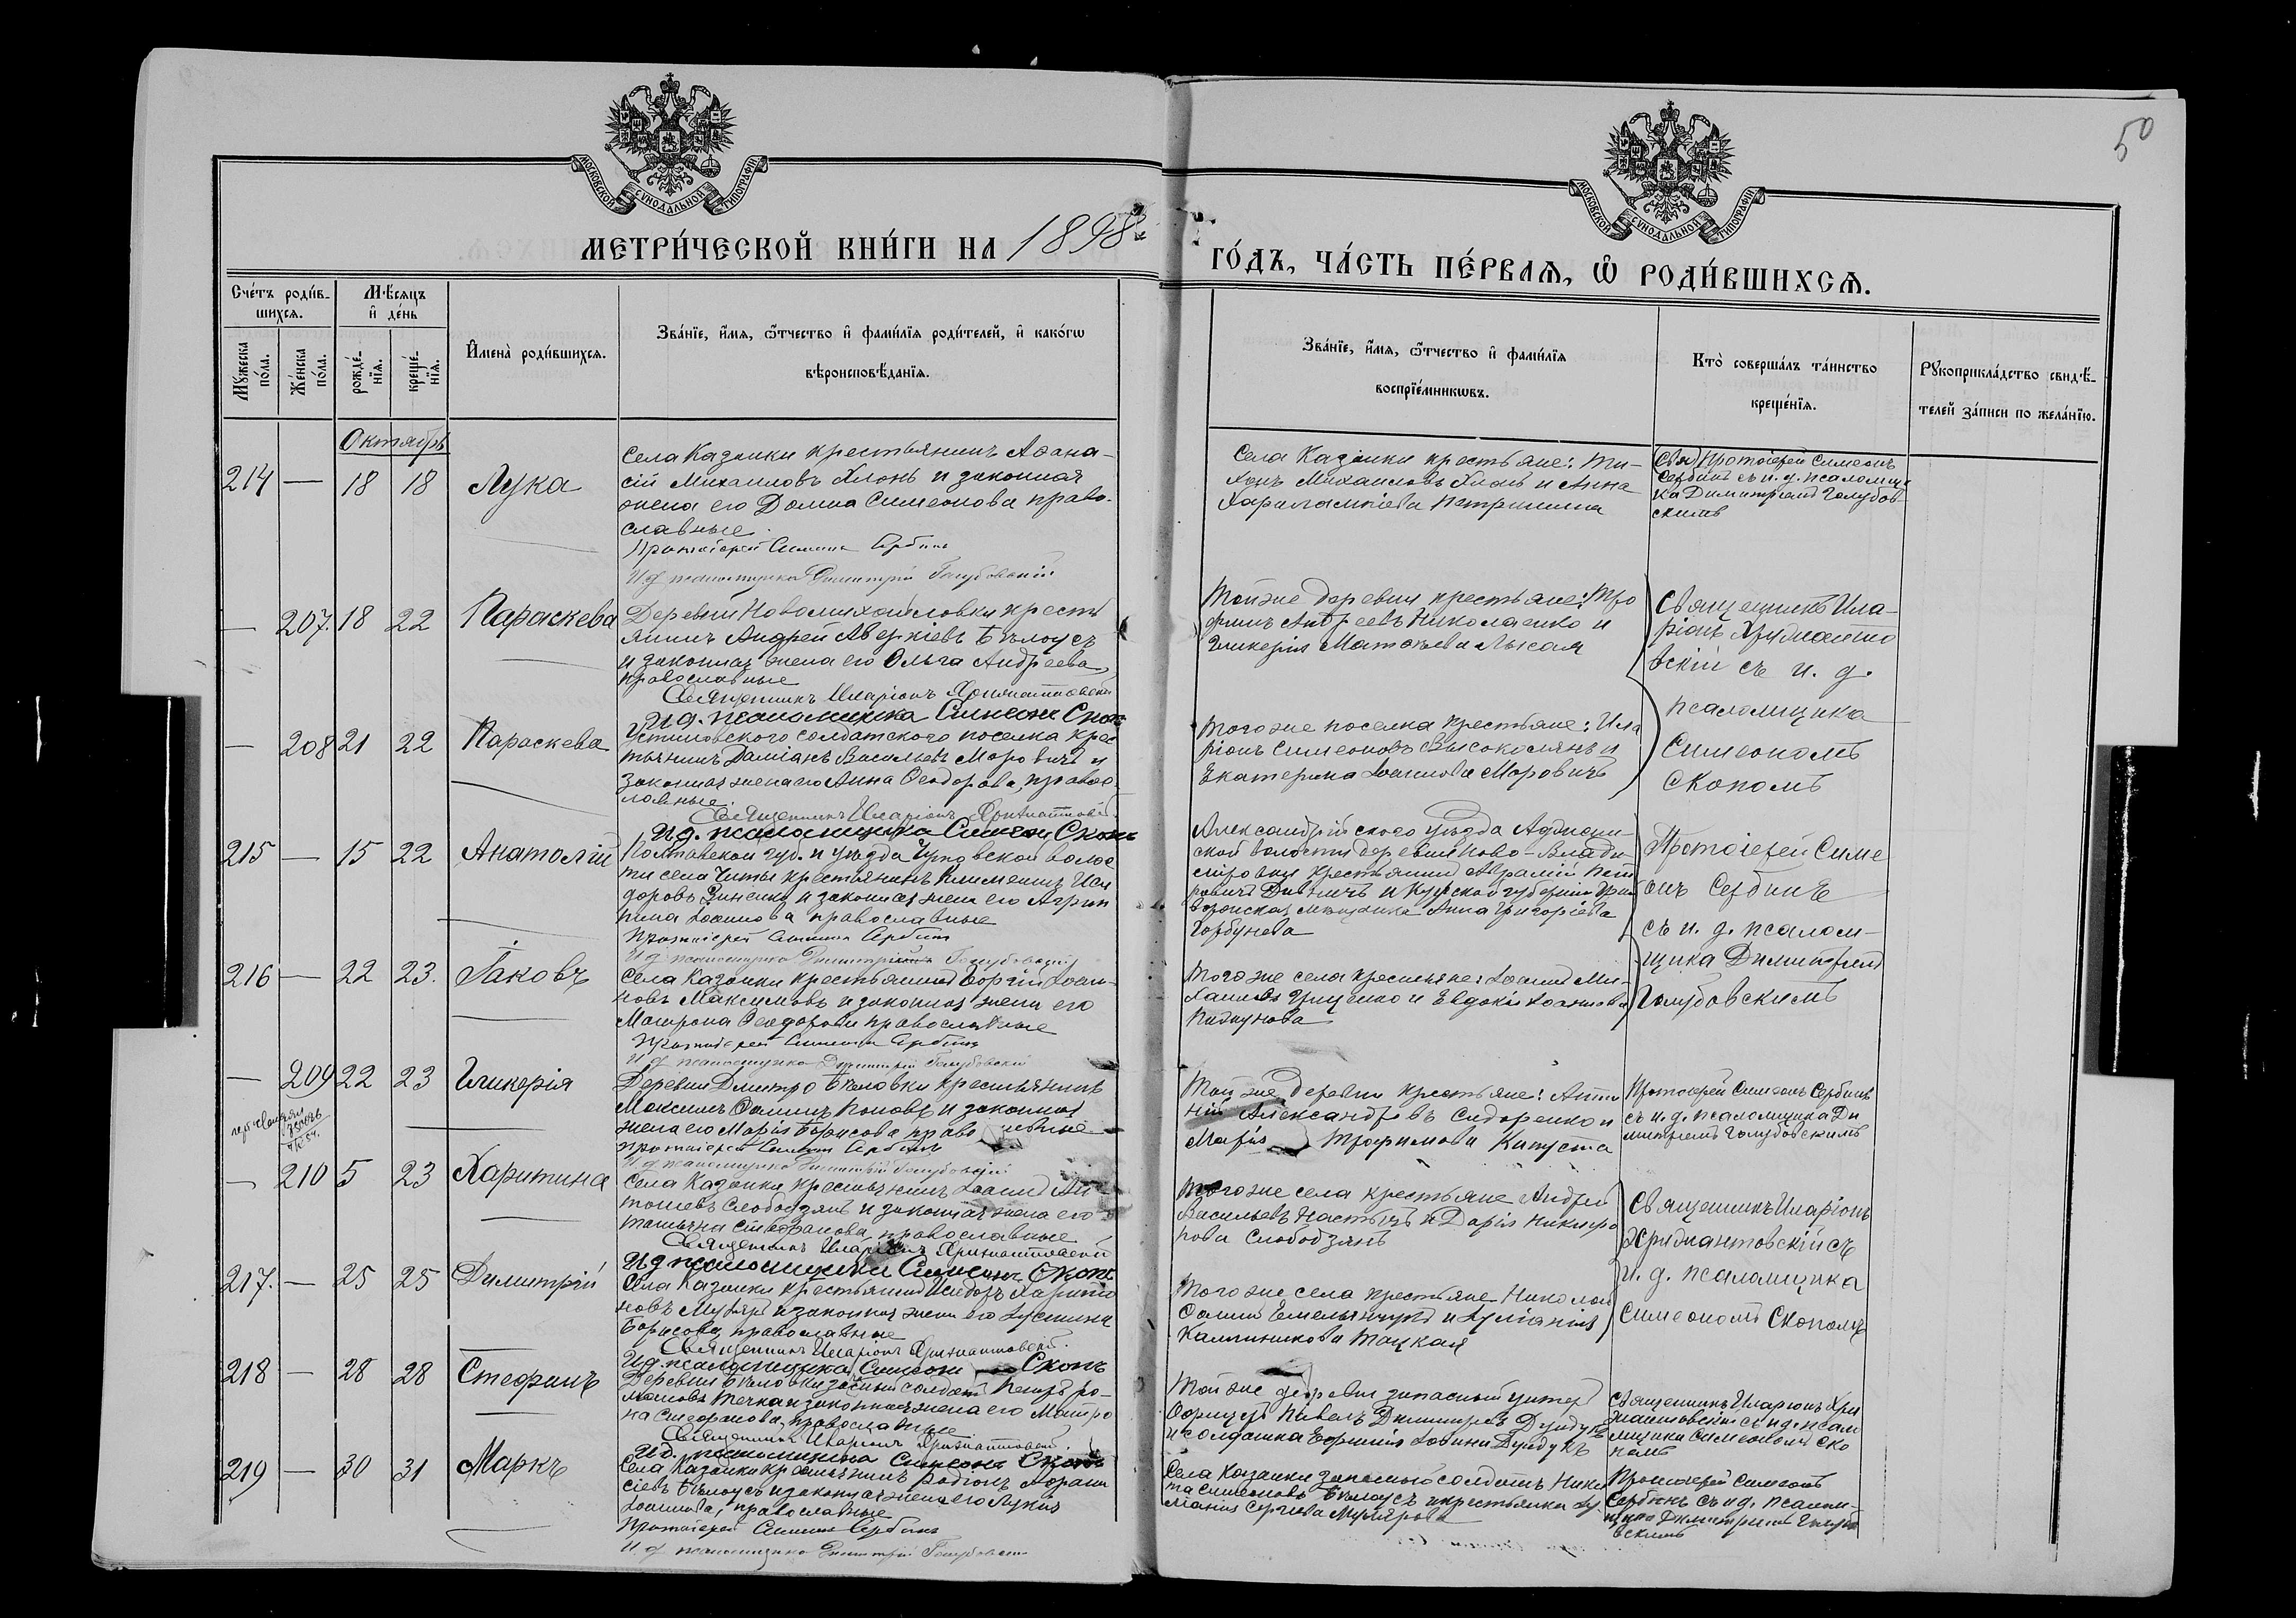 50
МОСКОВСКОЙ СѴНОДАЛЬНОЙ ТИПОГРАФІИ
МОСКОВСКОЙ СѴНОДАЛЬНОЙ ТИПОГРАФІИ
МЕТРИ́ЧЕСКОЙ КНИ́ГИ НА 1898
ГО́ДЪ, ЧА́СТЬ ПЕ́РВАѦ, Ѡ РОДИ́ВШИХСѦ.
Сче́тъ роди́в-
шихсѧ.
М҃ѣсѧцъ
и҆ де́нь
Мꙋ́жеска по́ла.
Же́нска по́ла.
рожде́-нїѧ.
креще́-нїѧ.
И҆мена̀ роди́вшихсѧ.
Зва́нїе, и҆́мѧ, ѻ҆́тчество и҆ фами́лїѧ роди́телей, и҆ како́гѡ
вѣроисповѣ́данїѧ.
Зва́нїе, и҆́мѧ, ѻ҆́тчество и҆ фами́лїѧ
воспрїе́мникѡвъ.
Кто̀ соверша́лъ та́инство
креще́нїѧ.
Рꙋкоприкла́дство свидѣ́-
телей за́писи по жела́нїю.
Октябрь
214 — 18 18 Лука
Села Казанки крестьянинъ Аѳана-
сій Михаиловъ Хлонь и законная
жена его Домна Симеонова право-
славные.
Протоіерей Симеонъ Сербинъ
И. д. псаломщика Димитрій Голубовскій
Села Казанки крестьяне: Ти-
хонъ Михаиловъ Хлонь и Анна
Харалампіева
Протоіерей Симеонъ
Сербинъ съ и. д. псаломщи-
ка Димитріемъ Голубов-
скимъ
— 207. 18 22 Параскева
Деревни Новомихайловки кресть
янинъ Андрей Аверкіевъ Бѣлоусъ
и законная жена его Ольга Андреева,
православные
Священникъ Иларіонъ
И. д. псаломщика Симеонъ Скопъ
Той же деревни крестьяне: Тро
фимъ Андреевъ Николаенко и
Гликерія Матѳеева Лысая
Священникъ Ила-
ріонъ
вскій съ и. д.
псаломщика
Симеономъ
Скопомъ
— 208 21 22 Параскева
Устиновского солдатского поселка крес
тьянинъ Даміанъ Васильевъ Маровичъ и
законная жена его Анна Ѳеодорова, правос
лавные.
Священникъ Иларіонъ
И. д. псаломщика Симеонъ Скопъ
Того же поселка крестьяне: Ила
ріонъ Симеоновъ и
Екатерина Іоаннова Маровичъ
215 — 15 22 Анатолій
Полтавской губ. и уѣзда волос
ти села крестьянинъ Климентъ Иси
доровъ и законная жена его Агрип
пина Іоаннова православные
Протоіерей Симеонъ Сербинъ
И. д. псаломщика Димитрій Голубовскій
Александрійского уѣзда
ской волости деревни Ново-Влади-
міровки крестьянинъ
и Курской губерніи
мѣщанка Анна Григоріева
Горбунова
Протоіерей Симе
онъ Сербинъ
съ и. д. псалом-
щика Димитріемъ
Голубовскимъ
216 — 22 23. Іаковъ
Села Казанки крестьянинъ Георгій Іоан-
новъ Максимовъ и законная жена его
Матрона Ѳеодорова православные
Протоіерей Симеонъ Сербинъ
И. д. псаломщика Димитрій Голубовскій
Того же села крестьяне: Іоаннъ Ми-
хаиловъ Гриценко и Евдокія Іоаннова
— 209 22 23 Гликерія
Деревни Дмитро Бѣловки крестьянинъ
Максимъ Ѳоминъ Поповъ и законная
жена его Марія Борисова православные
Протоіерей Симеонъ Сербинъ
И. д. псаломщика Димитрій Голубовскій
Той же деревни крестьяне: Анто
ній Александровъ Сидоренко и
Марія Трофимова Капуста
Протоіерей Симеонъ Сербинъ
съ и. д. псаломщика Ди
митріемъ Голубовскимъ
— 210 5 23 Харитина
Села Казанки крестьянинъ Іоаннъ Ан-
тоніевъ Слободзянъ и законная жена его
Татьяна Стефанова, православные
Священникъ Иларіонъ
И. д. псаломщика Симеонъ Скопъ
Того же села крестьяне Андрей
Васильевъ и Дарія Никифо
рова Слободзянъ
Священникъ Иларіонъ
съ
и. д. псаломщика
Симеономъ Скопомъ
217. — 25 25 Димитрій
Села Казанки крестьянинъ Исидоръ Харито
новъ Муляръ и законная жена его Іустина
Борисова, православные
Священникъ Иларіонъ
И. д. псаломщика Симеонъ Скопъ
Того же села крестьяне Николай
Ѳоминъ Емельянчукъ и Іуліанія
Калинникова
218 — 28 28 Стефанъ
Деревни Бѣловки запасный солдатъ Петръ Ро-
мановъ и законная жена его Матро
на Стефанова, православные
Священникъ Иларіонъ
И. д. псаломщика Симеонъ Скопъ
Той же деревни запасный унтеръ
офицеръ Павелъ Димитріевъ
и солдатка Евфимія
Священникъ Иларіонъ
съ и. д. псалом
щика Симеономъ Ско
помъ
219 — 30 31 Маркъ
Села Казанки крестьянинъ Родіонъ Аѳана
сіевъ Бѣлоусъ и законная жена его Лукія
Іоаннова, православные
Протоіерей Симеонъ Сербинъ
И. д. псаломщика Димитрій Голубовскій
Села Казанки запасный солдатъ Ники
та Симеоновъ Бѣлоусъ и крестьянка Іу
ліанія Сергіева Мулярова
Протоіерей Симеонъ
Сербинъ съ и. д. псалом-
щика Димитріемъ Голубо
вскимъ